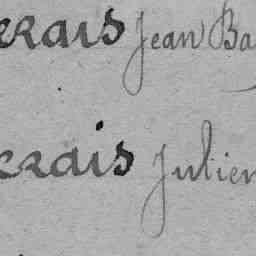 erais Jean Ba
erais Julien